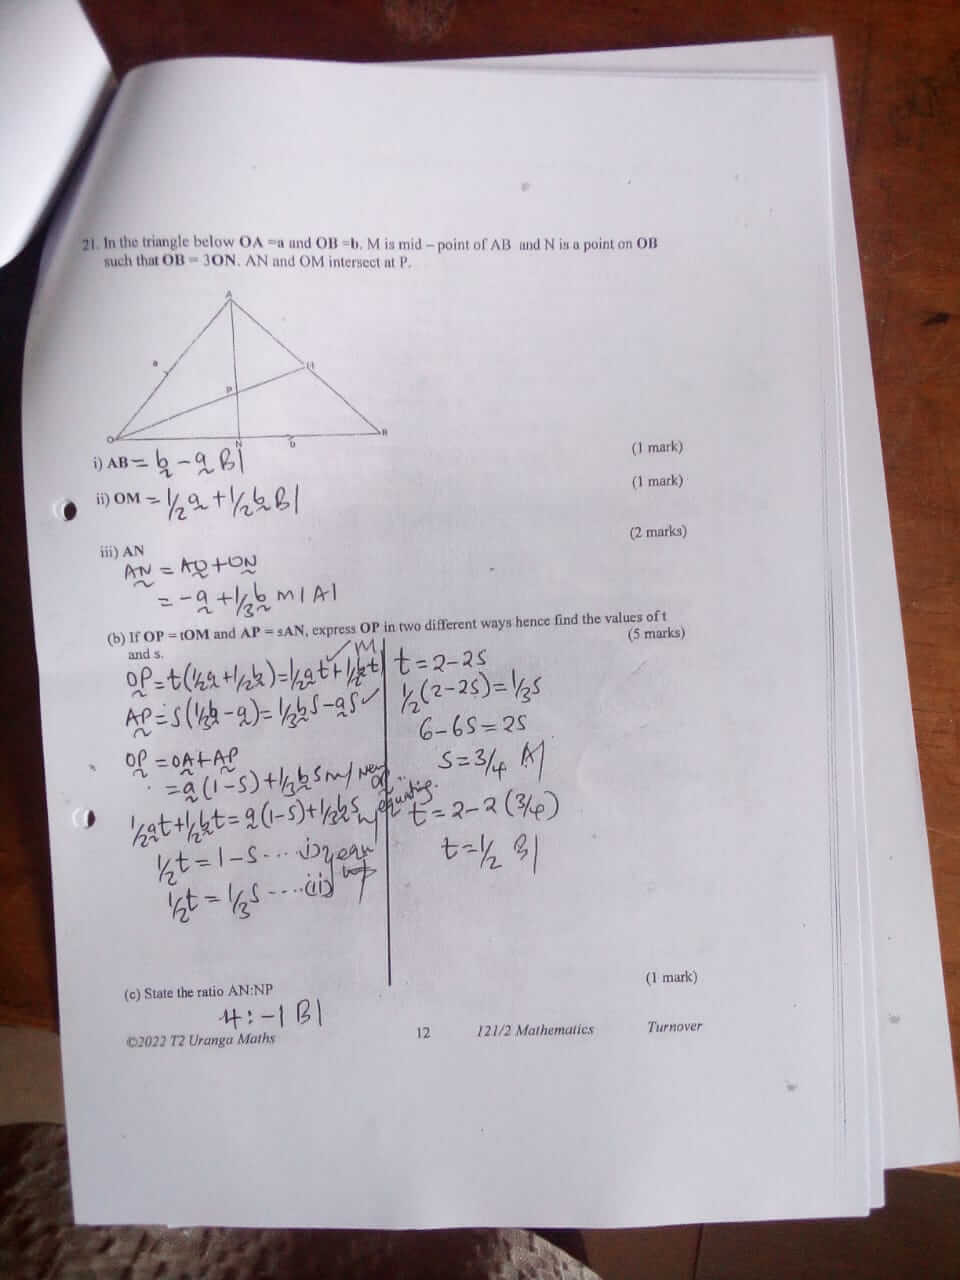 21. In the triangle below OA =a and OB =b. M is mid – point of AB and N is a point on OB
such that OB = 3ON. AN and OM intersect at P.
A
a
M
P
O
N
b
B
i) AB = b - a B1
(1 mark)
ii) OM = 1/2 a + 1/2 b B1
(1 mark)
(2 marks)
iii) AN
AN = AO + ON
= -a + 1/3 b M1 A1
(b) If OP = tOM and AP = sAN, express OP in two different ways hence find the values of t
and s.
(5 marks)
OP = t(1/2a + 1/2b) = 1/2at + 1/2bt ✓ M1
AP = s(1/3b - a) = 1/3bs - as ✓
OP = OA + AP
= a(1-s) + 1/3bs m1 new OP
1/2at + 1/2bt = a(1-s) + 1/3bs equating
1/2t = 1-s ... i)
1/2t = 1/3s .... (ii)
t = 2-2s
1/2(2-2s) = 1/3s
6-6s = 2s
s = 3/4 A1
t = 2-2(3/4)
t = 1/2 B1
(c) State the ratio AN:NP
(1 mark)
4:-1 B1
©2022 T2 Uranga Maths
12
121/2 Mathematics
Turnover